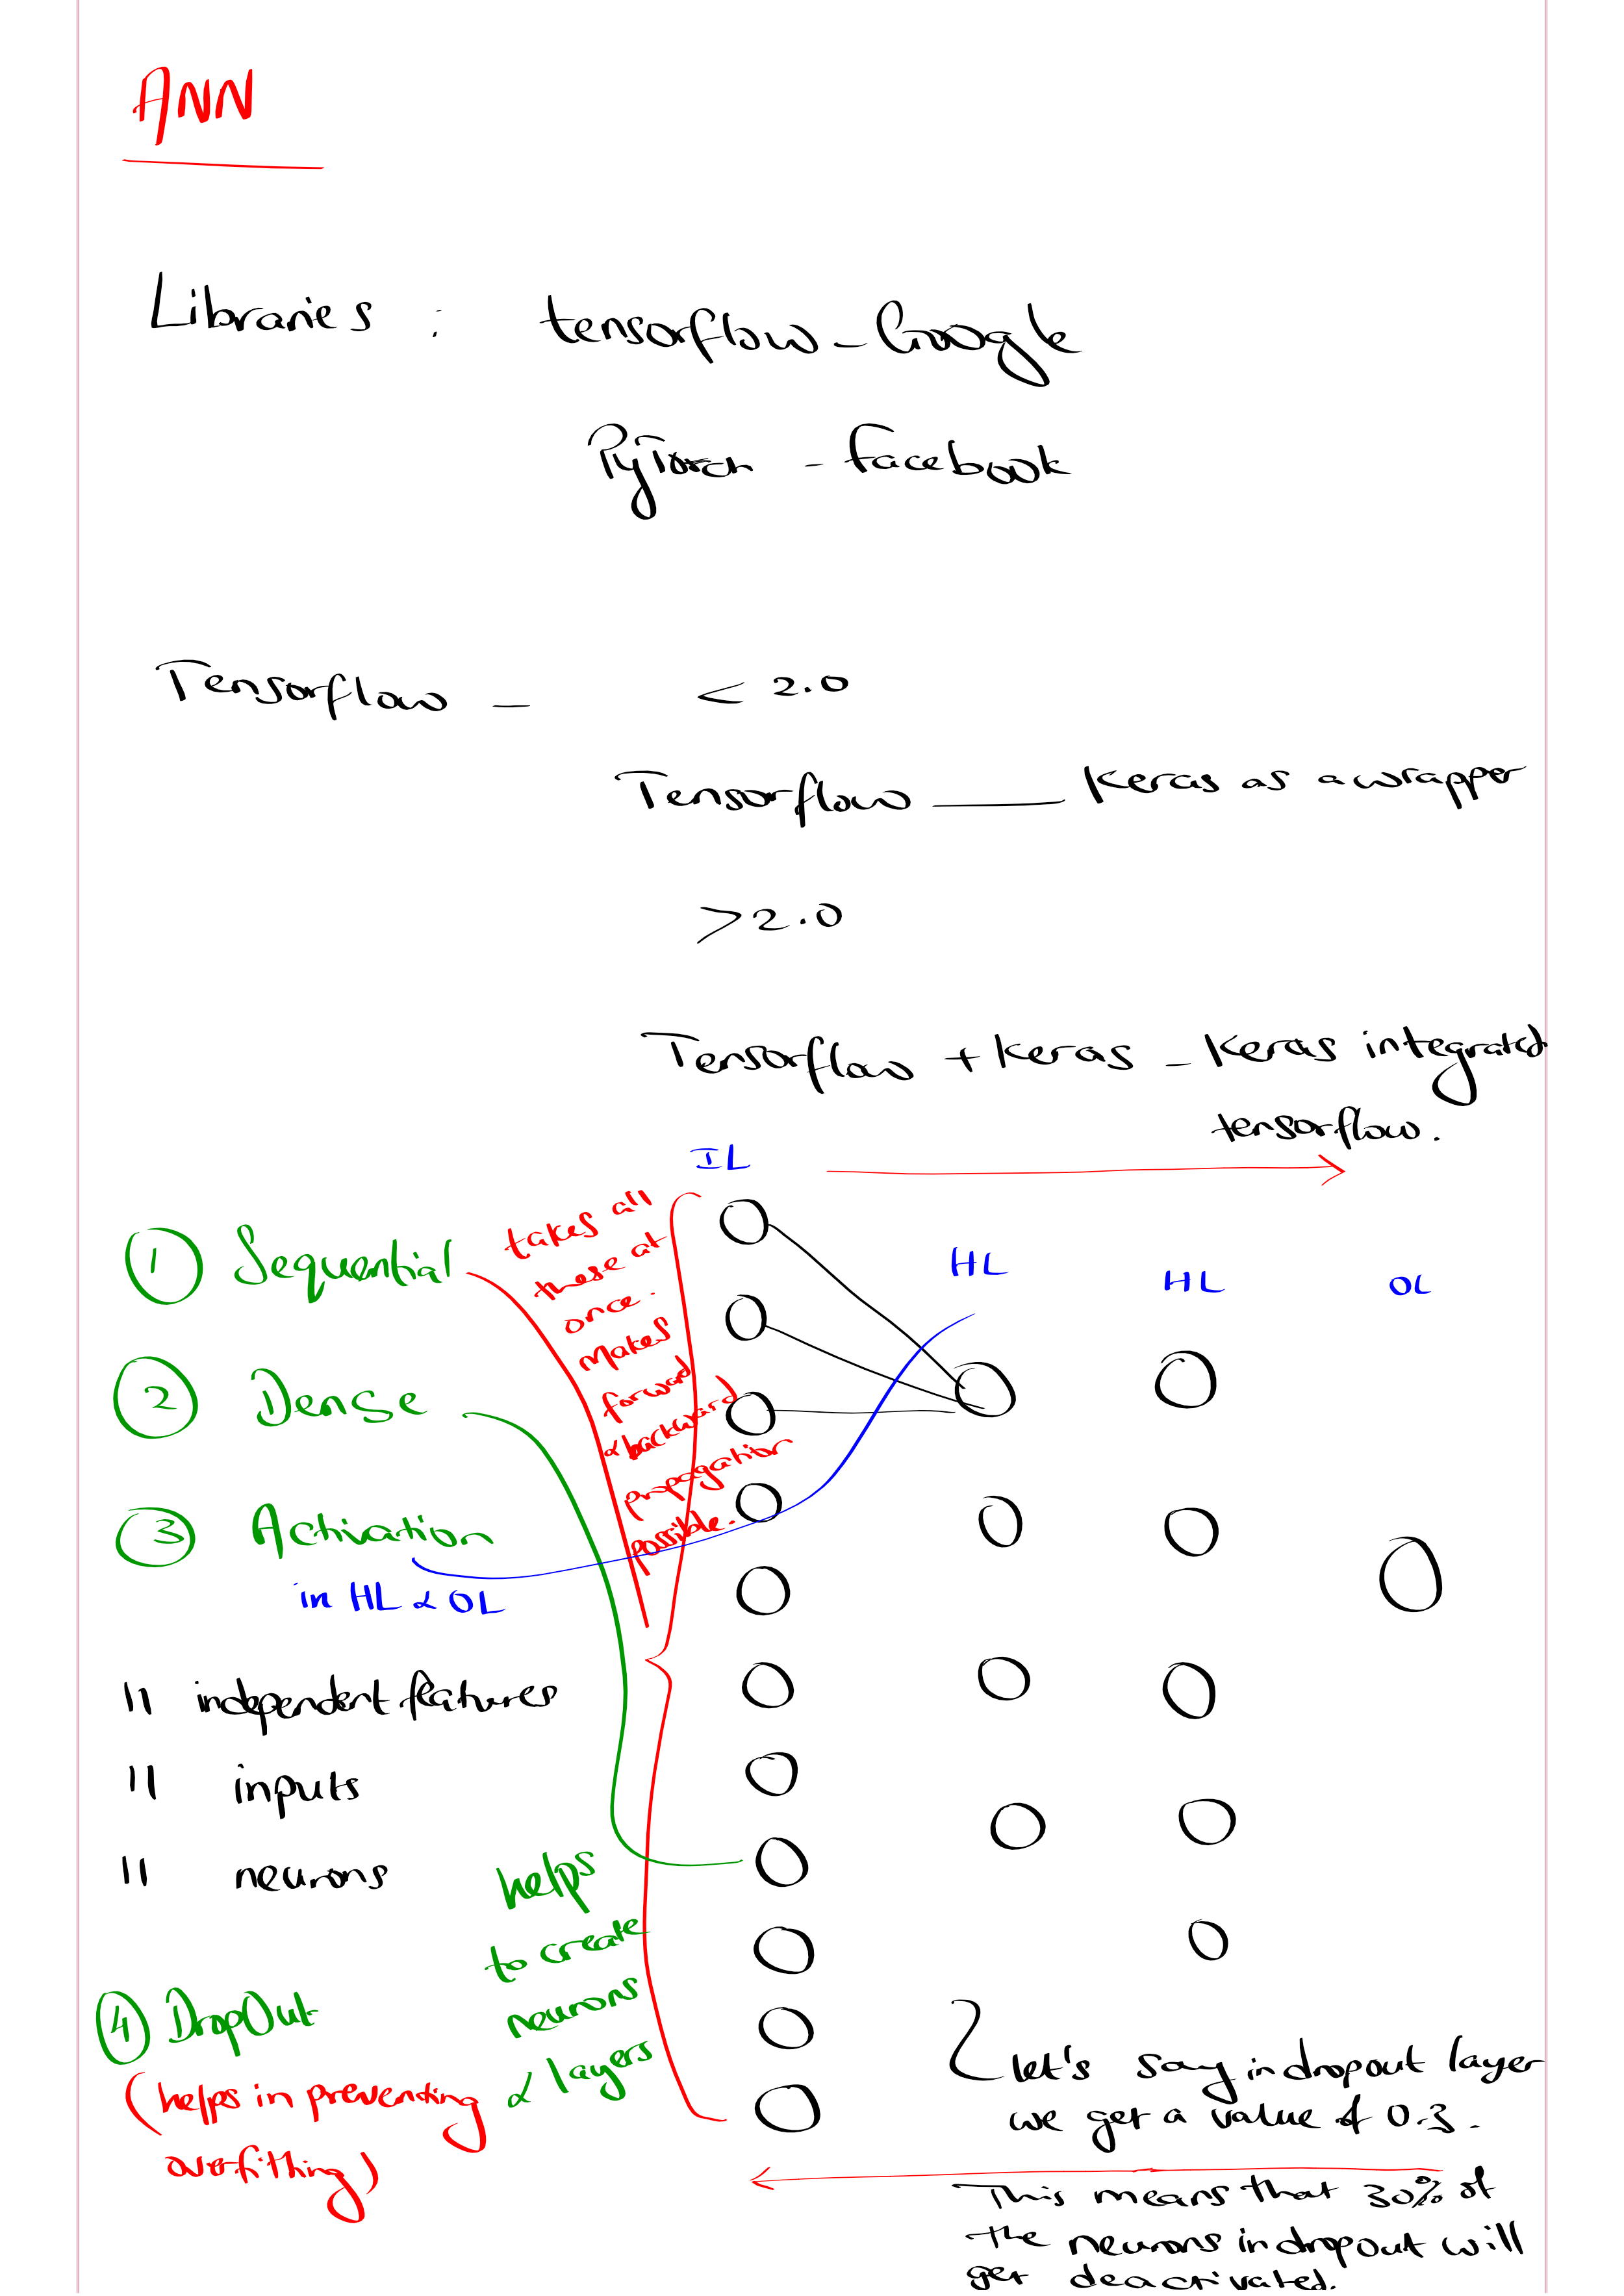 ANN
Libraries : tensorflow - Google
PyTorch - Facebook
Tensorflow - < 2.0
Tensorflow —— Keras as a wrapper
>2.0
Tensorflow + Keras - Keras integrated
tensorflow.
IL
HL
HL
OL
① Sequential
takes all
these at
once.
Makes
forward
& backward
propagation
possible.
② Dense
③ Activation
in HL & OL
11 independent features
11 inputs
11 neurons
helps
to create
neurons
& layers
④ DropOut
(helps in preventing
overfitting)
let's say in dropout layer
we get a value of 0.3.
This means that 30% of
the neurons in dropout will
get deactivated.